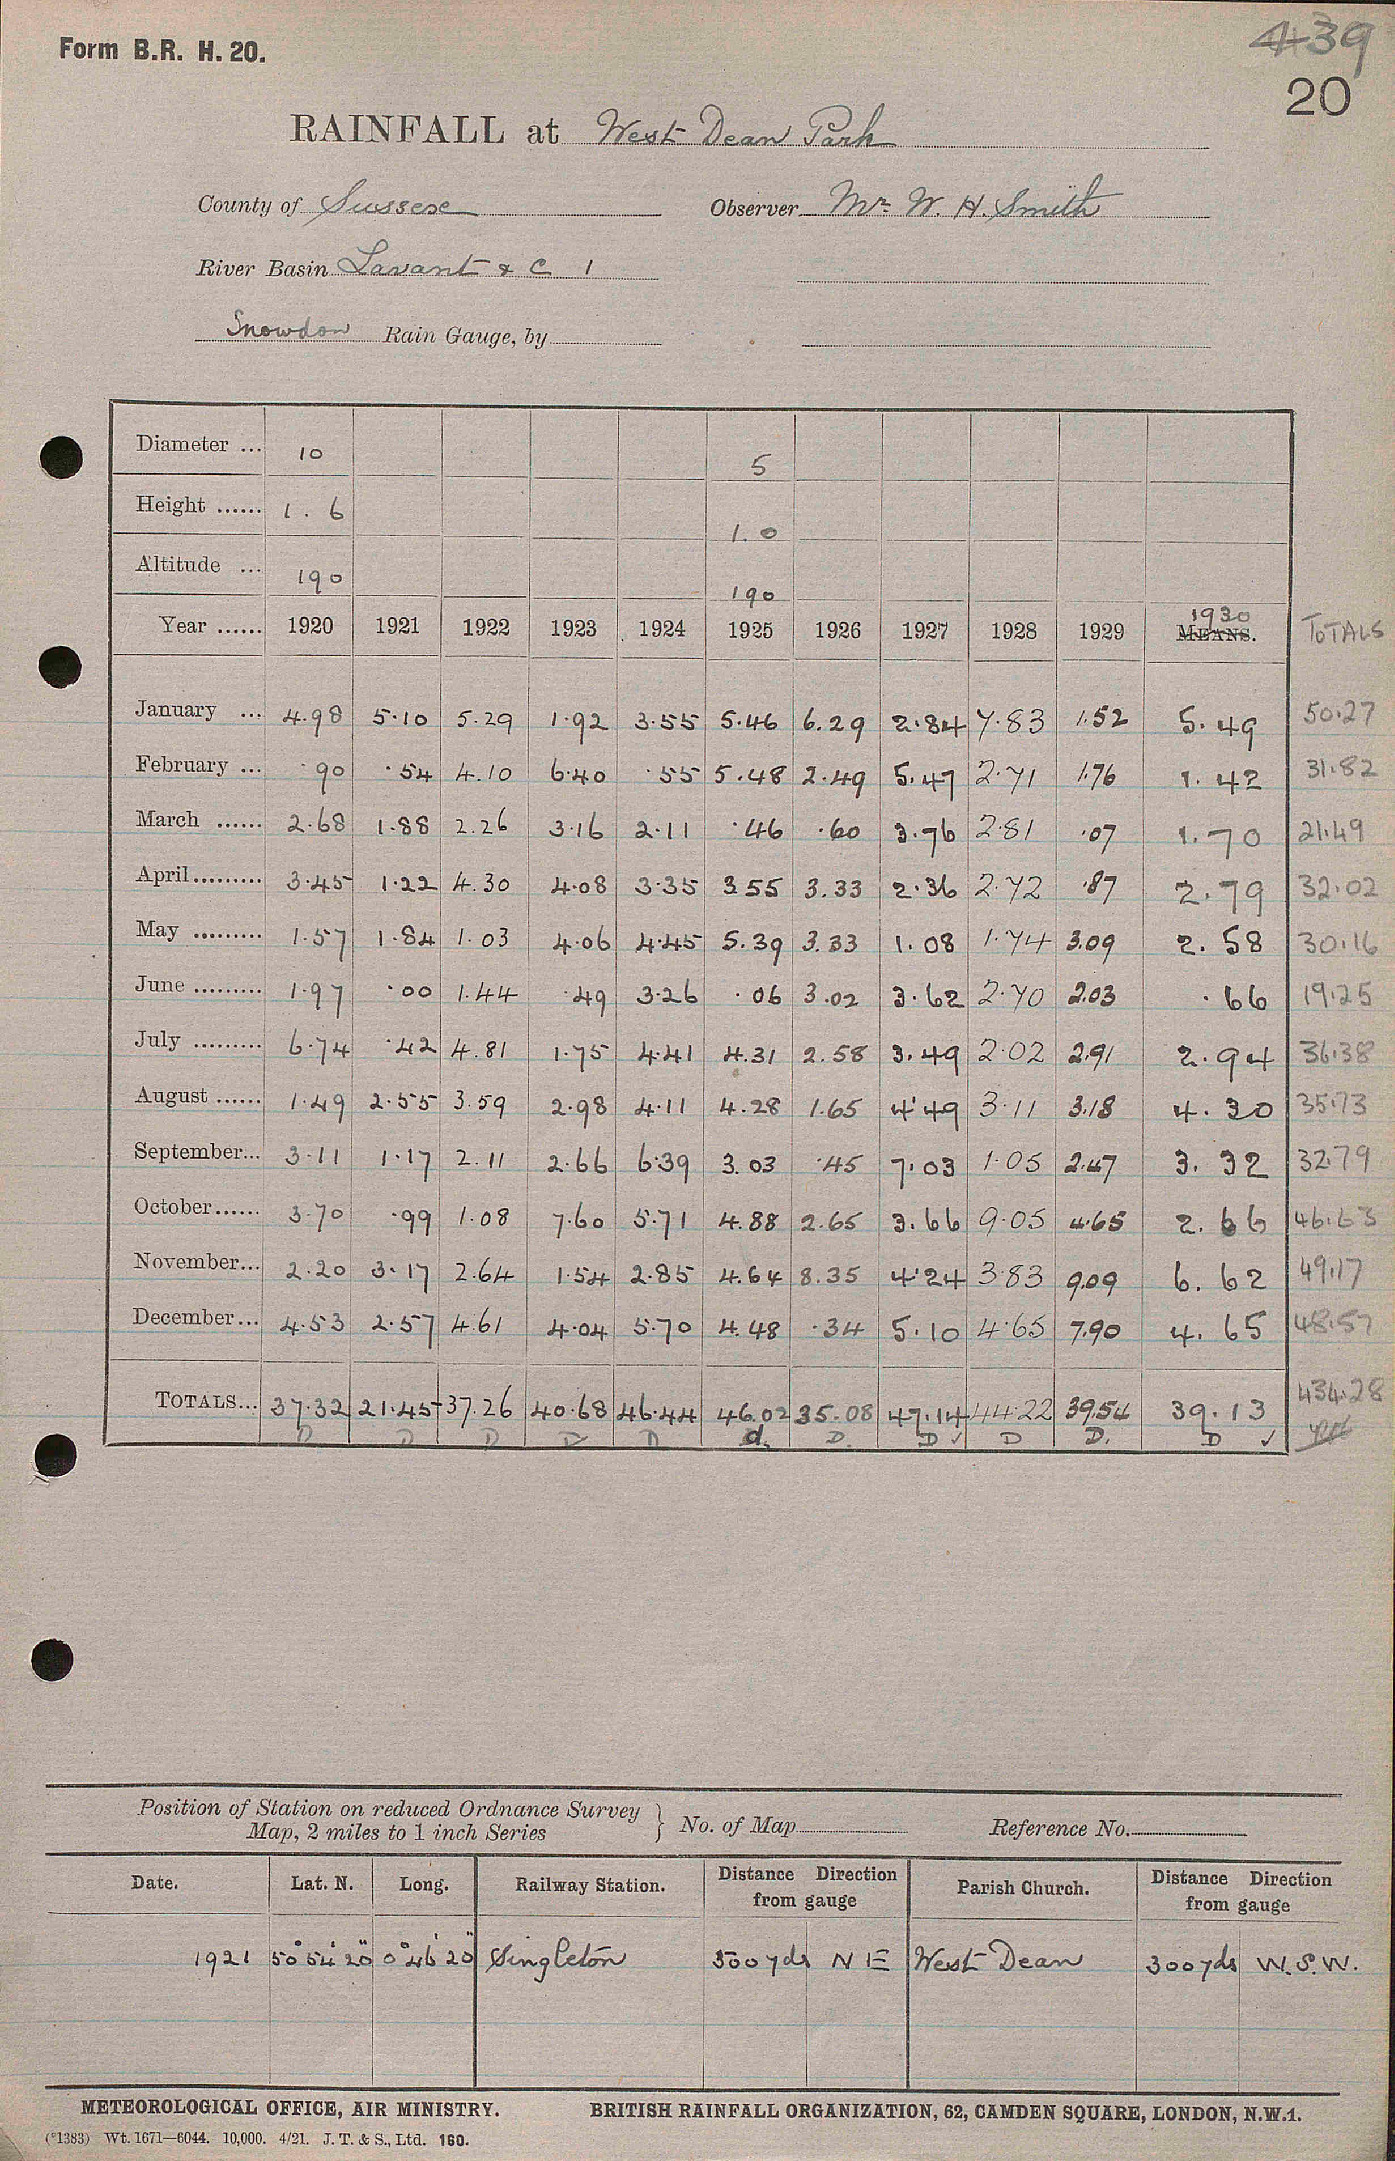 Form B.R. H. 20.
439
20
RAINFALL at West Dean Park
County of Sussex Observer Mr. W. H. Smith
River Basin Lavant & C 1
Snowdon Rain Gauge, by
Diameter ... 10 5
Height ...... 1. 6 1. 0
Altitude ... 190 190
Year ...... 1920 1921 1922 1923 1924 1925 1926 1927 1928 1929 1930 MEANS. TOTALS
January ... 4.98 5.10 5.29 1.92 3.55 5.46 6.29 2.84 7.83 1.52 5.49 50.27
February ... .90 .54 4.10 6.40 .55 5.48 2.49 5.47 2.71 1.76 1.42 31.82
March ...... 2.68 1.88 2.26 3.16 2.11 .46 .60 3.76 2.81 .07 1.70 21.49
April......... 3.45 1.22 4.30 4.08 3.35 3.55 3.33 2.36 2.72 .87 2.79 32.02
May ......... 1.57 1.84 1.03 4.06 4.45 5.39 3.33 1.08 1.74 3.09 2.58 30.16
June ......... 1.97 .00 1.44 .49 3.26 .06 3.02 3.62 2.70 2.03 .66 19.25
July ......... 6.74 .42 4.81 1.75 4.41 4.31 2.58 3.49 2.02 2.91 2.94 36.38
August ...... 1.49 2.55 3.59 2.98 4.11 4.28 1.65 4.49 3.11 3.18 4.30 35.73
September... 3.11 1.17 2.11 2.66 6.39 3.03 .45 7.03 1.05 2.47 3.32 32.79
October...... 3.70 .99 1.08 7.60 5.71 4.88 2.65 3.66 9.05 4.65 2.66 46.63
November... 2.20 3.17 2.64 1.54 2.85 4.64 8.35 4.24 3.83 9.09 6.62 49.17
December... 4.53 2.57 4.61 4.04 5.70 4.48 .34 5.10 4.65 7.90 4.65 48.57
TOTALS... 37.32 21.45 37.26 40.68 46.44 46.02 35.08 47.14 44.22 39.54 39.13 434.28
D D D D D d. D. D ✓ D D. D ✓
Position of Station on reduced Ordnance Survey Map, 2 miles to 1 inch Series } No. of Map Reference No.
Date. Lat. N. Long. Railway Station. Distance Direction from gauge Parish Church. Distance Direction from gauge
1921 50° 54' 20" 0° 46' 20" Singleton 500 yds N E West Dean 300 yds W.S.W.
METEOROLOGICAL OFFICE, AIR MINISTRY. BRITISH RAINFALL ORGANIZATION, 62, CAMDEN SQUARE, LONDON, N.W.1.
(*1383) Wt. 1671—6044. 10,000. 4/21. J. T. & S., Ltd. 160.